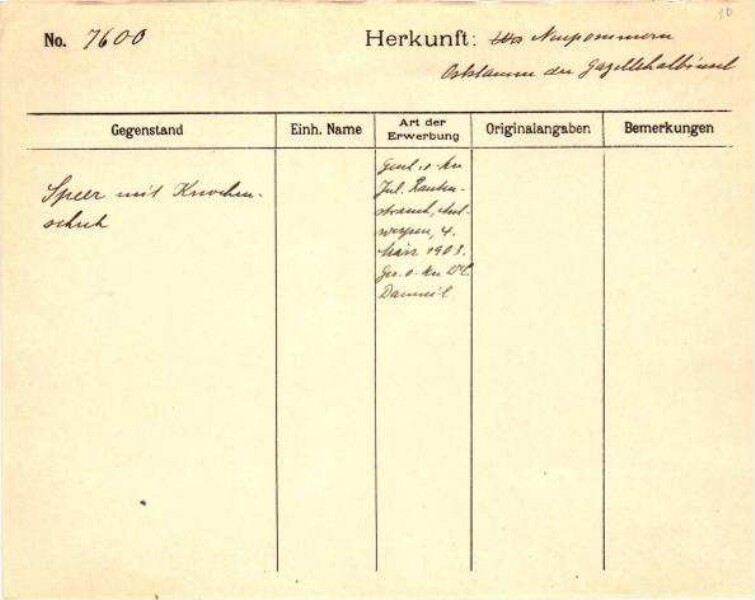 10
No. 7600
Herkunft: Neupommern
Oststamm der Gazellehalbinsel
Gegenstand
Einh. Name
Art der
Erwerbung
Originalangaben
Bemerkungen
Speer mit Knochen-
schuh
Jul. Rauten-
strauch, Ant-
werpen, 4.
März 1903.
Ges. v.